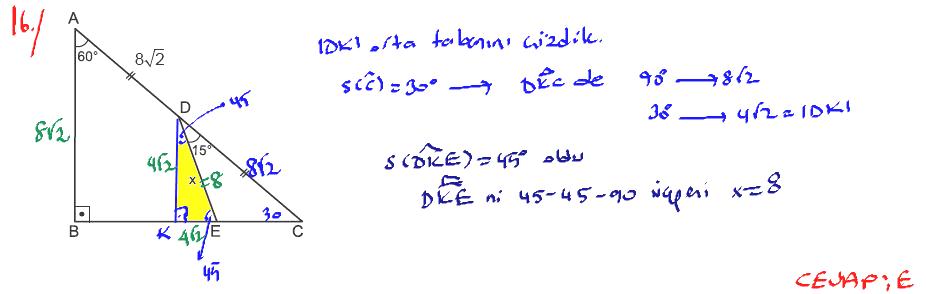 16./
A
60°
8√2
45
D
8√2
15°
4√2
8√2
x=8
30
B
K
4√2
E
C
45
|DK| orta tabanını çizdik.
s(Ĉ)=30° → DKC de 90° → 8√2
30° → 4√2=|DK|
s(DKE)=45° oldu
DKE ni 45-45-90 üçgeni x=8
CEVAP: E